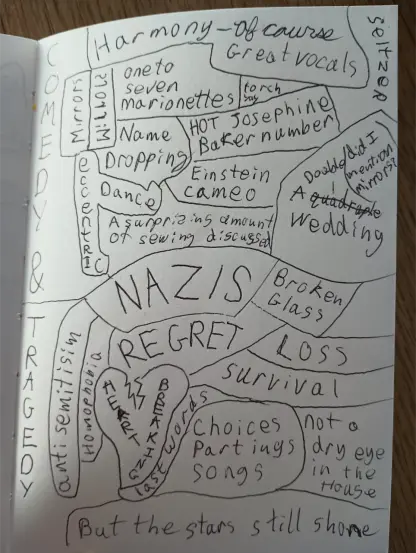 COMEDY & TRAGEDY
Harmony - Of course
Great vocals
Seltzer
Mirrors
one to
seven
marionettes
torch
Name
Dropping
HOT Josephine
Baker number
eccentric
Dance
Einstein
cameo
A surprizing amount
Of sewing discussed
Did I
mention
mirrors?
Double
A quadruple
Wedding
NAZIS
Broken
Glass
REGRET
LOSS
Survival
antisemitisim
Homophobia
HEART
BREAKING
last words
Choices
Partings
Songs
not a
dry eye
in the
House
But the stars still shone